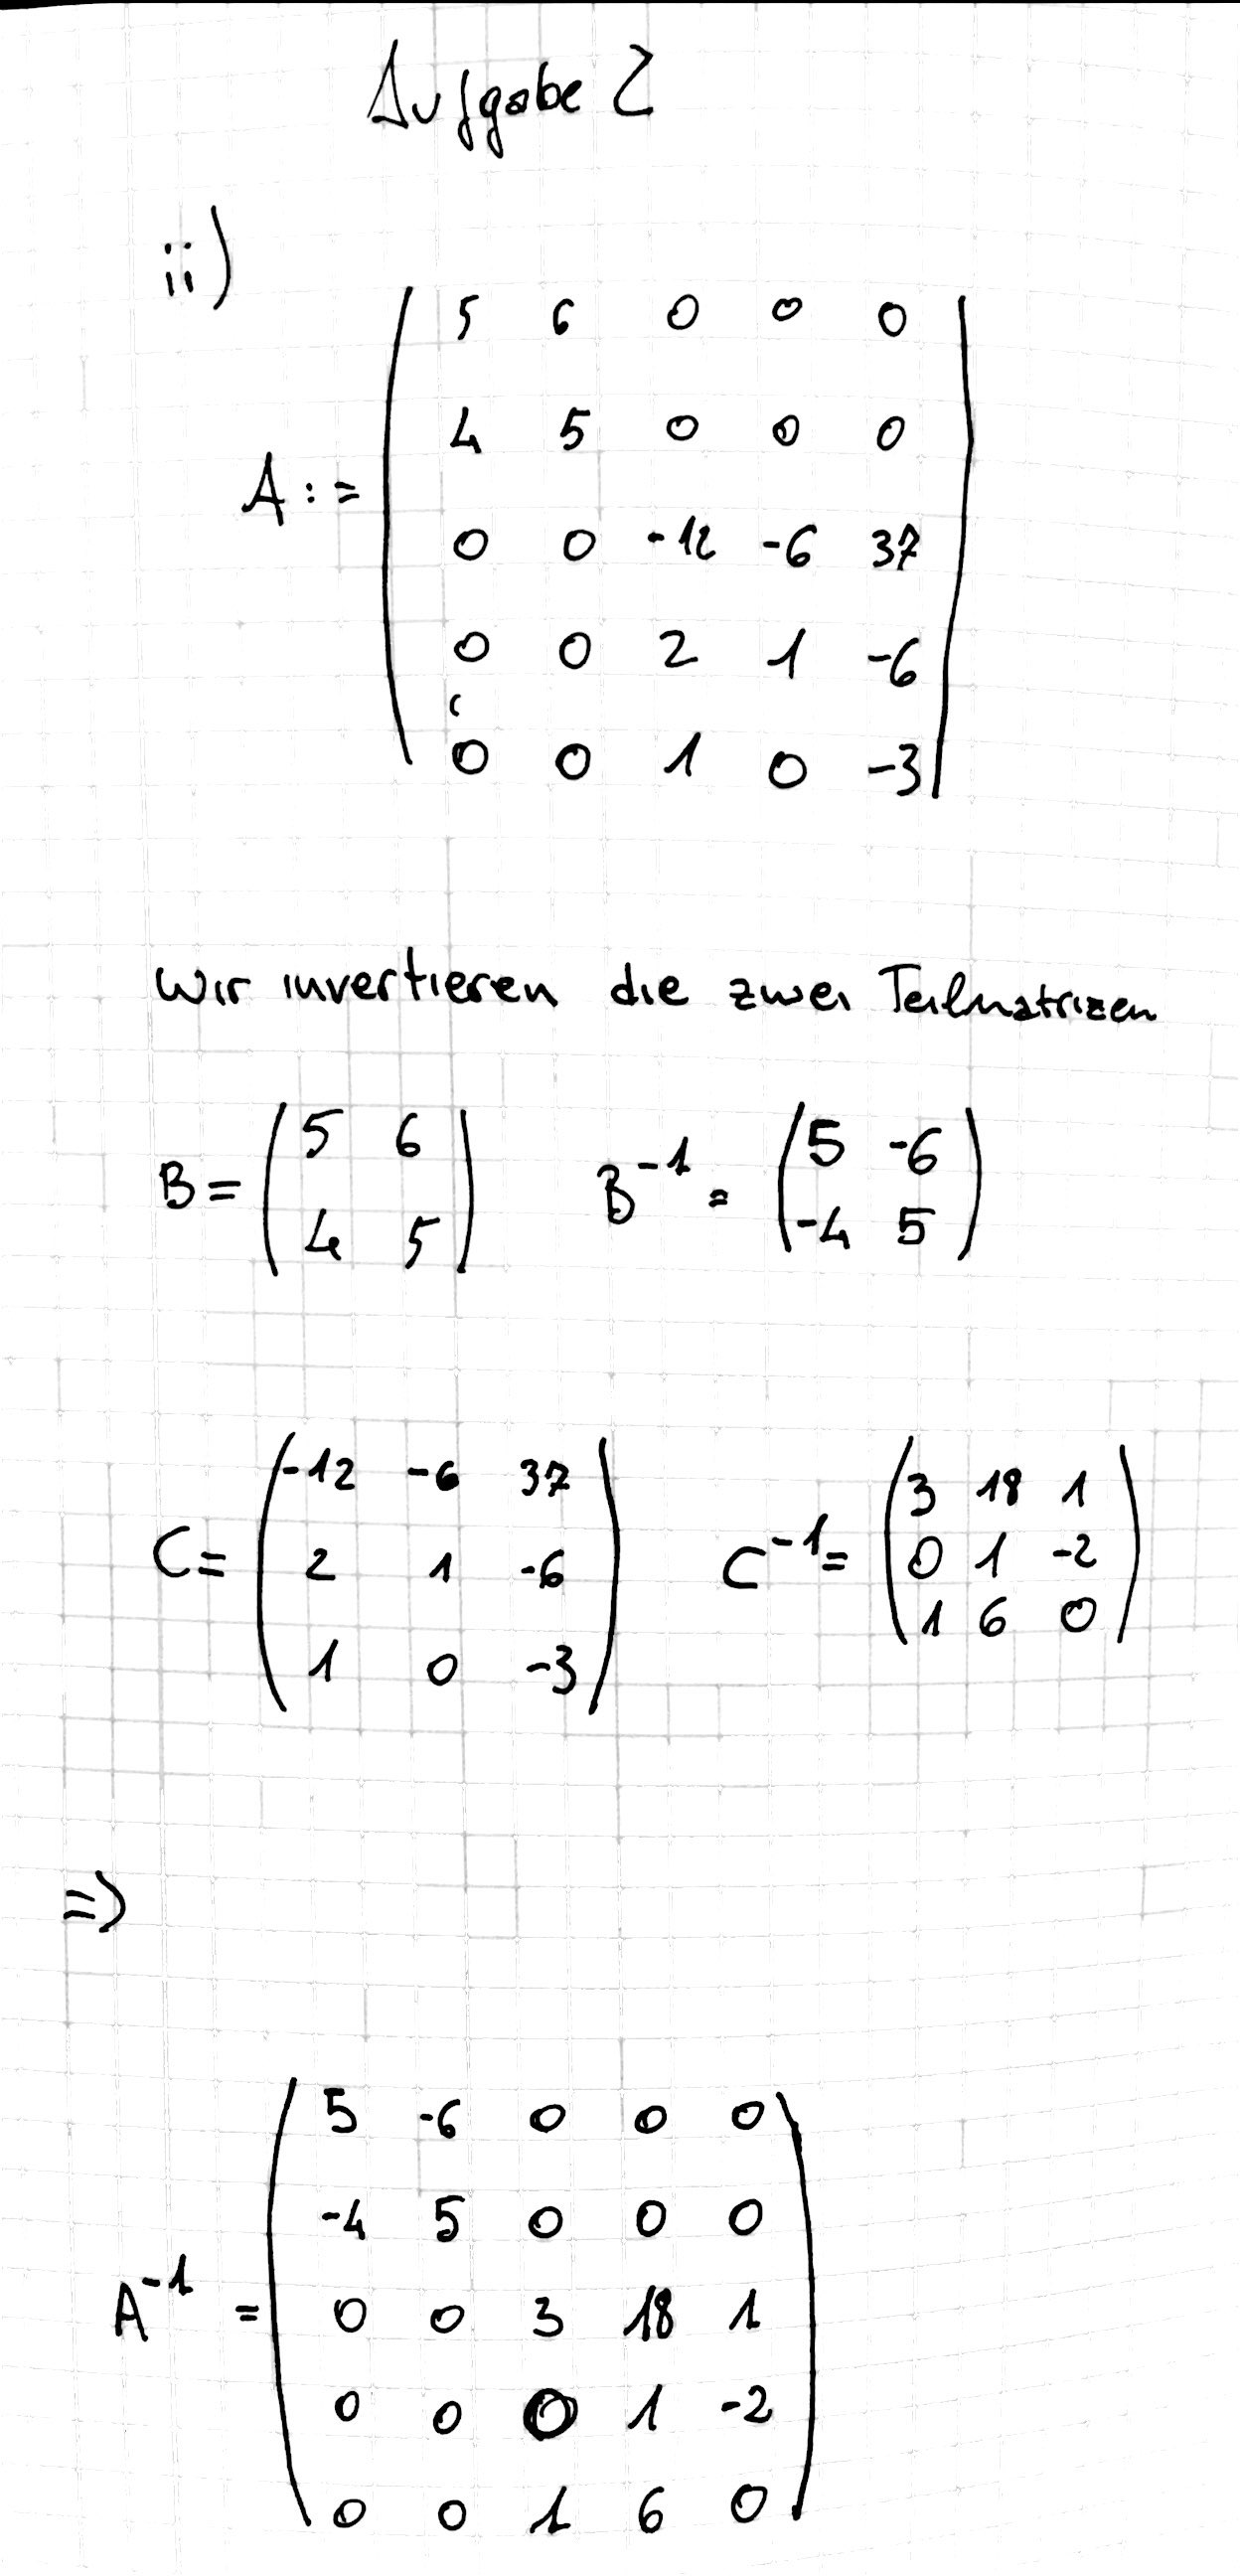 Aufgabe 2
ii)
A := ( 5 6 0 0 0
4 5 0 0 0
0 0 -12 -6 37
0 0 2 1 -6
0 0 1 0 -3 )
Wir invertieren die zwei Teilmatrizen
B = ( 5 6
4 5 )
B^-1 = ( 5 -6
-4 5 )
C = ( -12 -6 37
2 1 -6
1 0 -3 )
C^-1 = ( 3 18 1
0 1 -2
1 6 0 )
=>
A^-1 = ( 5 -6 0 0 0
-4 5 0 0 0
0 0 3 18 1
0 0 0 1 -2
0 0 1 6 0 )